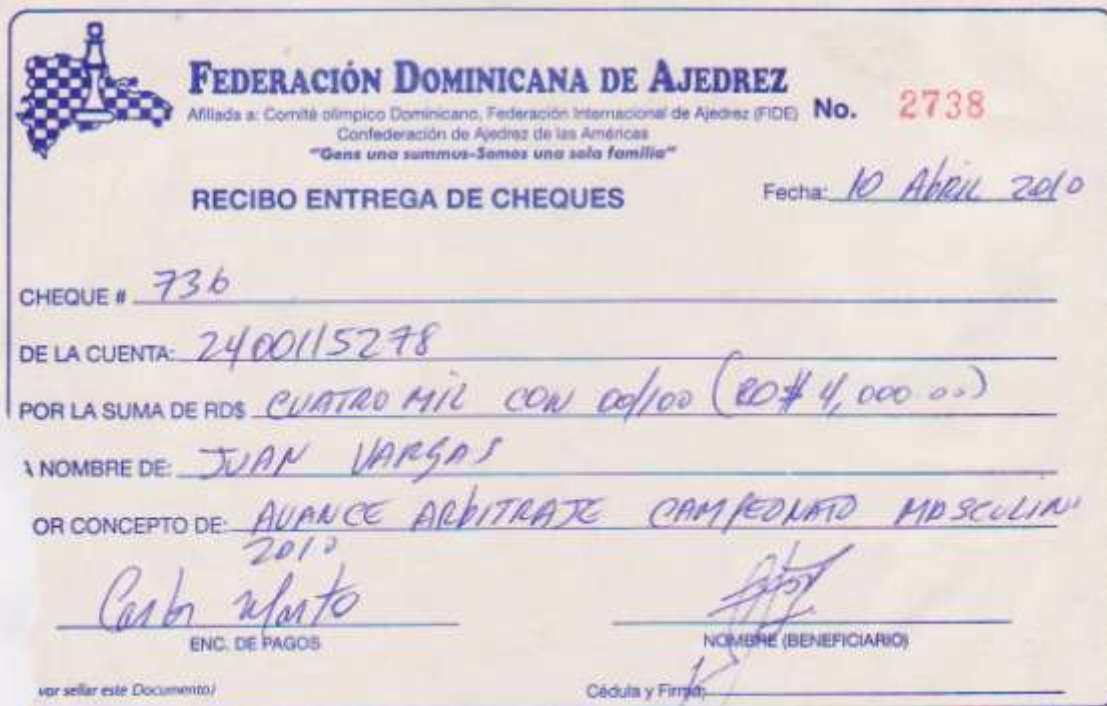 FEDERACIÓN DOMINICANA DE AJEDREZ
Afiliada a: Comité olímpico Dominicano, Federación Internacional de Ajedrez (FIDE) No. 2738
Confederación de Ajedrez de las Américas
"Gens una summus-Somos una sola familia"
RECIBO ENTREGA DE CHEQUES
Fecha: 10 Abril 2010
CHEQUE # 736
DE LA CUENTA: 2400115278
POR LA SUMA DE RD$ CUATRO MIL CON 00/100 (RD$ 4,000.00)
A NOMBRE DE: JUAN VARGAS
OR CONCEPTO DE: AVANCE ARBITRAJE CAMPEONATO MASCULINO
2010
ENC. DE PAGOS
NOMBRE (BENEFICIARIO)
vor sellar este Documento)
Cédula y Firma: